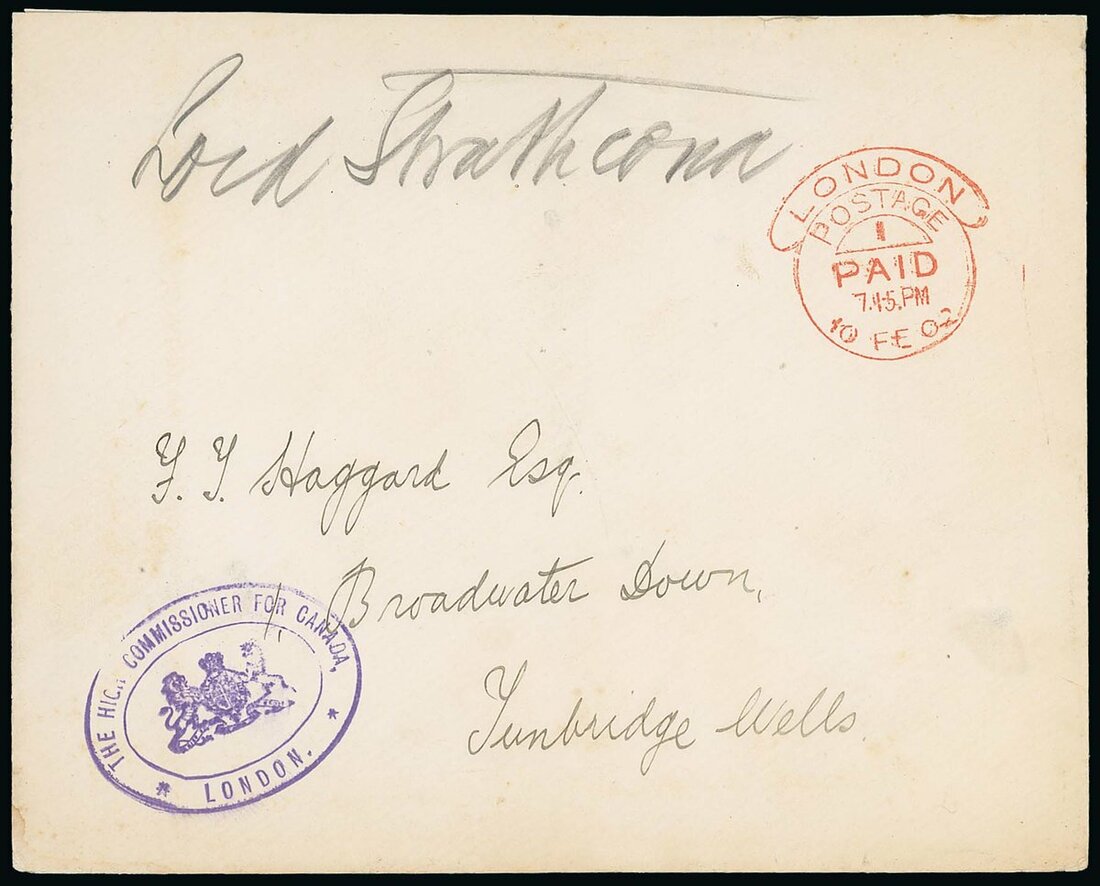 Lord Strathcona
LONDON
POSTAGE
1
PAID
7.45.PM
10 FE 02
F. T. Haggard Esq.
Broadwater Down,
Tunbridge Wells.
THE HIGH COMMISSIONER FOR CANADA,
* LONDON. *